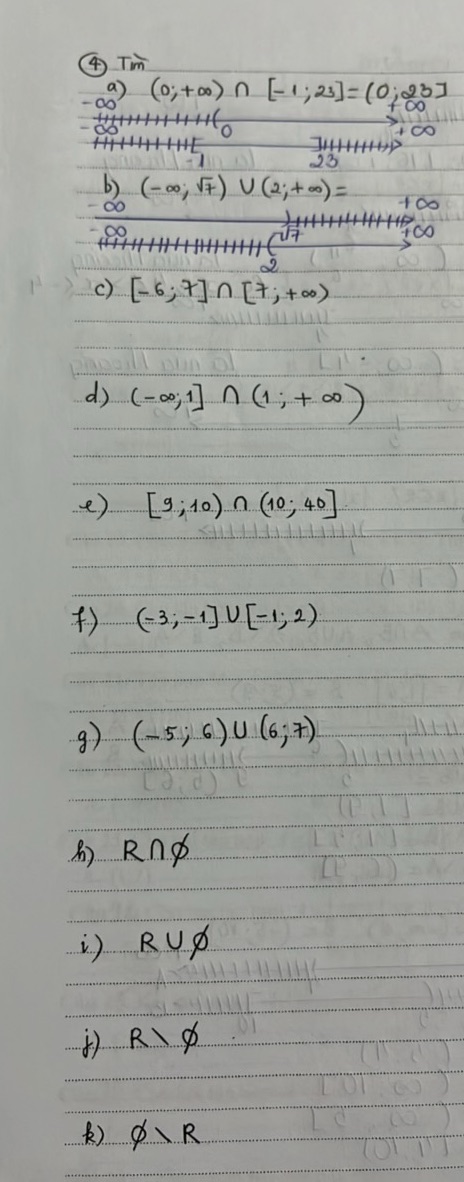 ④ Tìm
a) (0;+∞) ∩ [-1;23] = (0;23]
-∞ 0 +∞
-∞ -1 23 +∞
b) (-∞; √7) ∪ (2;+∞) =
-∞ √7 +∞
-∞ 2 +∞
c) [-6;7] ∩ [7;+∞)
d) (-∞;1] ∩ (1;+∞)
e) [9;10) ∩ (10;40]
f) (-3;-1] ∪ [-1;2)
g) (-5;6) ∪ (6;7)
h) R ∩ ∅
i) R ∪ ∅
j) R \ ∅
k) ∅ \ R